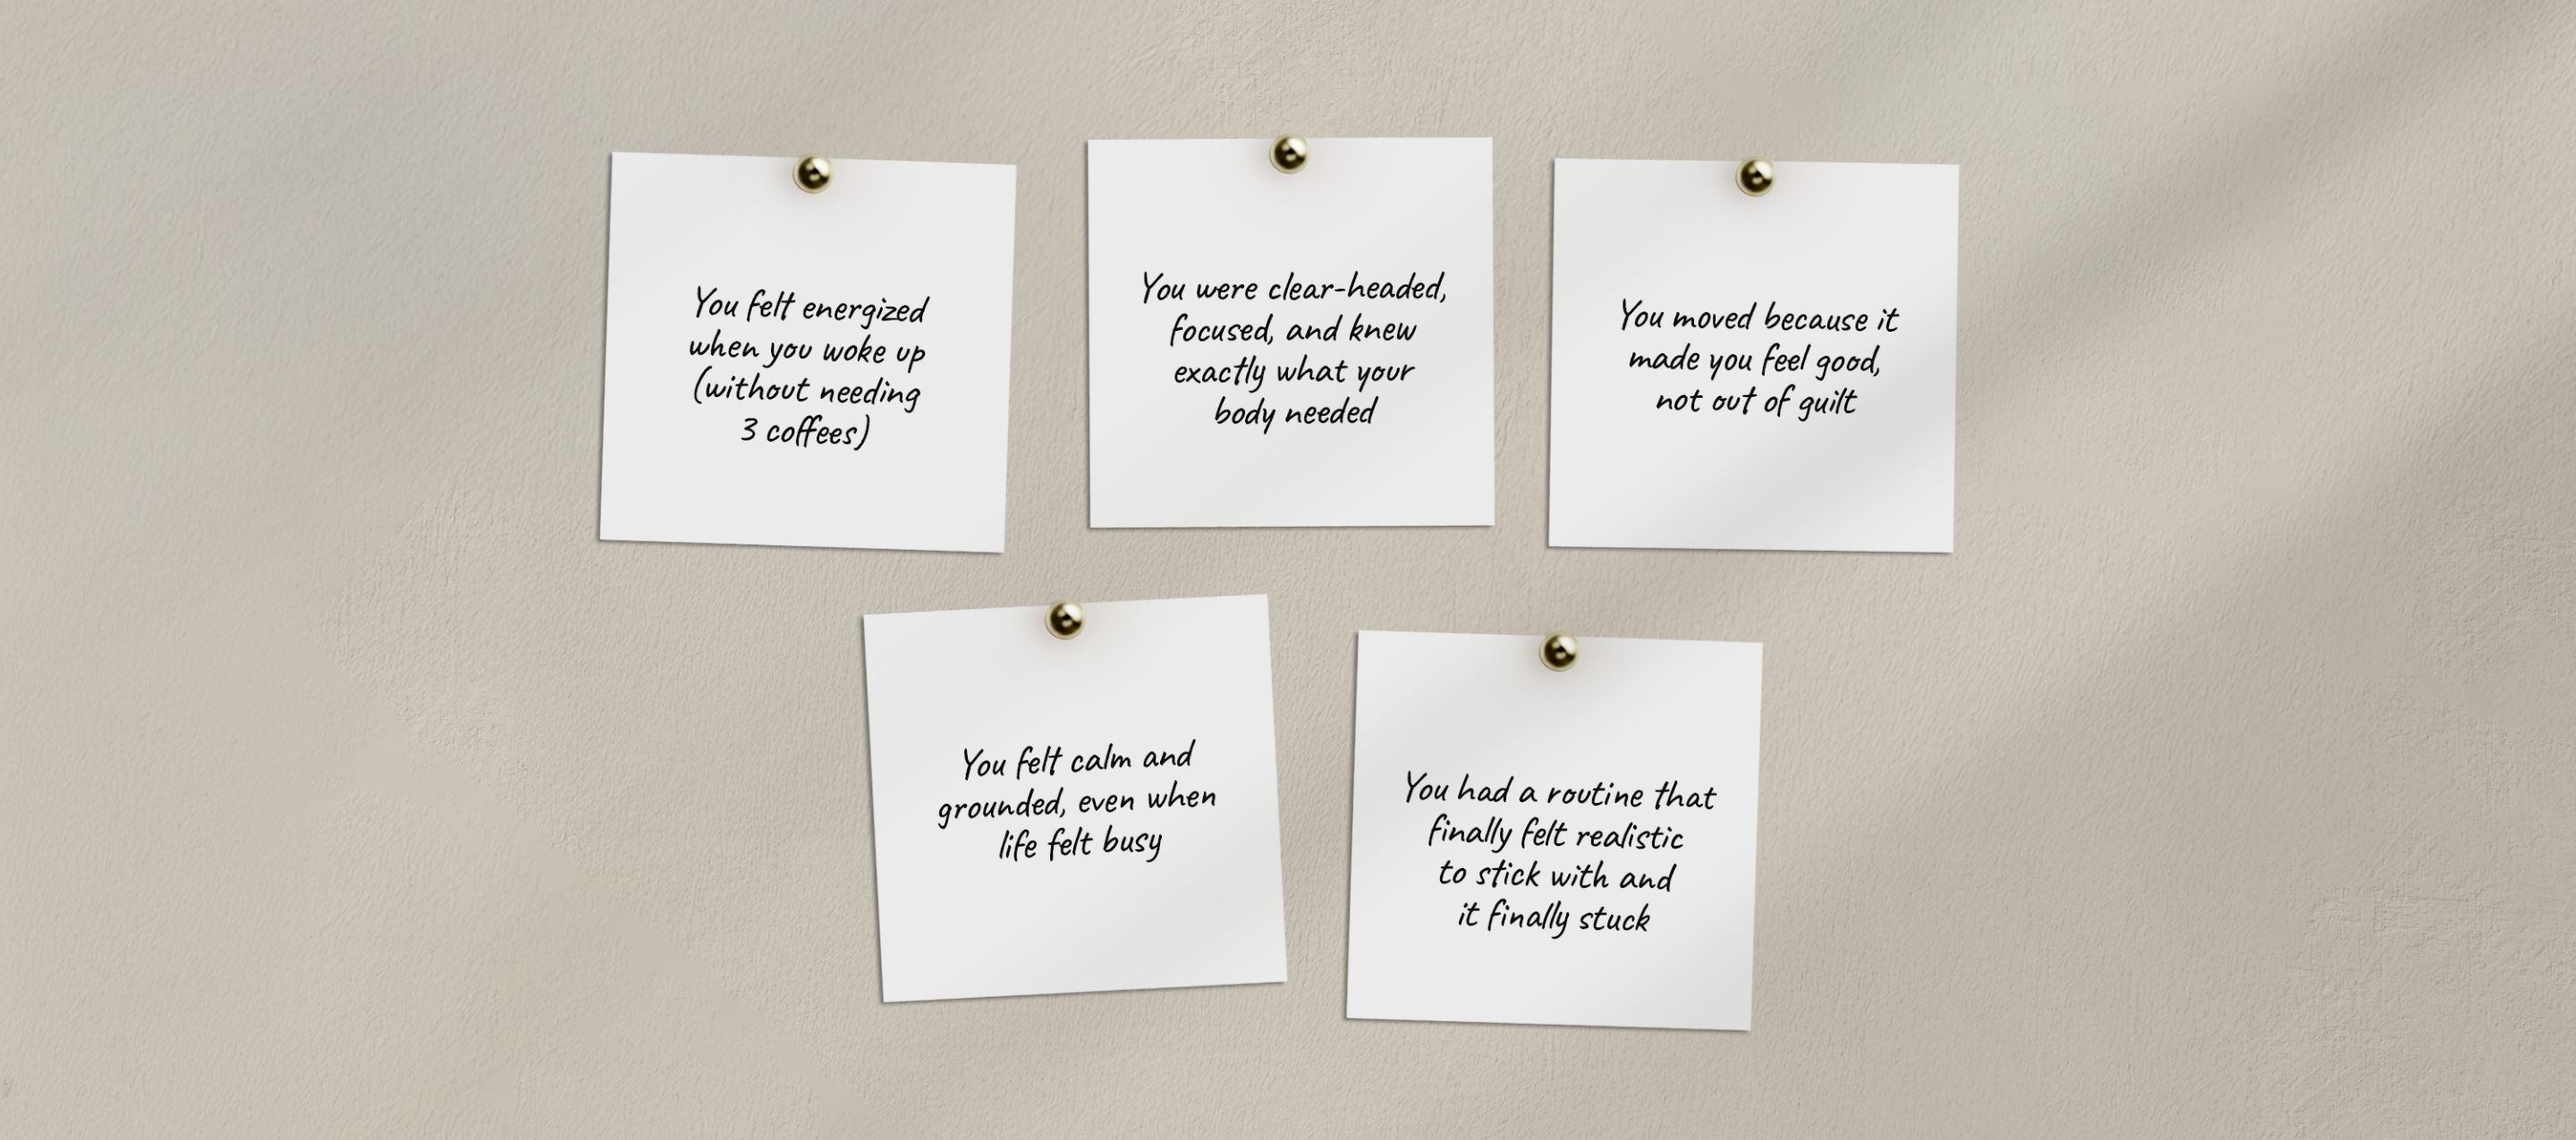 You felt energized
when you woke up
(without needing
3 coffees)
You were clear-headed,
focused, and knew
exactly what your
body needed
You moved because it
made you feel good,
not out of guilt
You felt calm and
grounded, even when
life felt busy
You had a routine that
finally felt realistic
to stick with and
it finally stuck